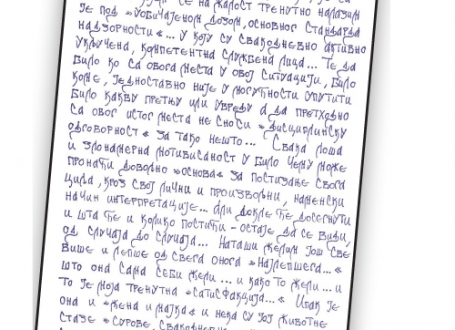 се на жалост тренутно налазим
је под »уобичајеном дозом, основног стандарда
надзорности«... у коју су свакодневно активно
укључена, компетентна службена лица... Те да
било ко са овога места у овој ситуацији, било
коме, једноставно није у могућности упутити
било какву претњу или увреду а да претходно
са овог истог места не сноси »дисциплинску
одговорност« за тако нешто... Свака лоша
и злонамерна мотивисаност у било чему може
пронаћи довољно »основа« за постизање свога
циља, кроз свој лични и произвољни, наменски
начин интерпретације... Али докле ће досегнути
и шта ће и колико постићи - остаје да се види,
од случаја до случаја... Наташи желим још све
више и лепше од свега онога »најлепшега...«
што она сама себи жели... и како то жели... и
то је моја тренутна »сатисфакција...« Ипак је
она и »жена и мајка« и нека су јој животне
стазе »сурове,